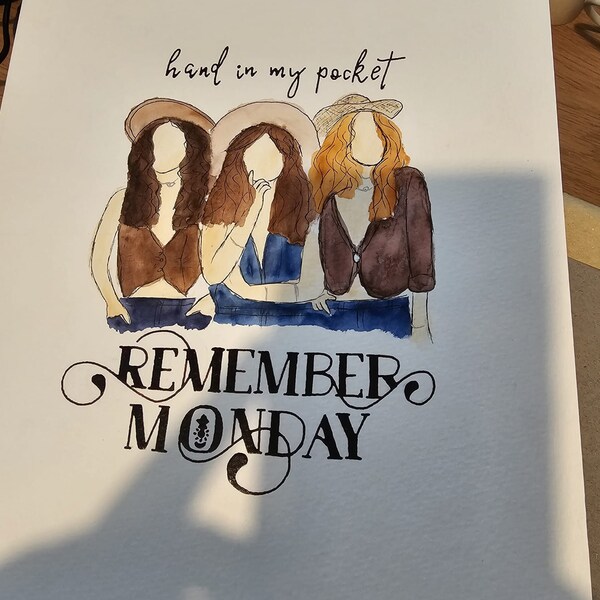 hand in my pocket
REMEMBER
MONDAY